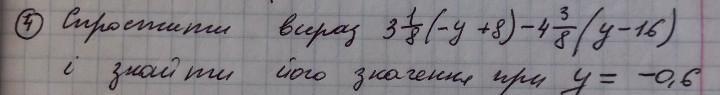 ④ Спростити вираз 3 1/8 (-y+8) - 4 3/8 (y-16)
і знайти його значення при y = -0,6